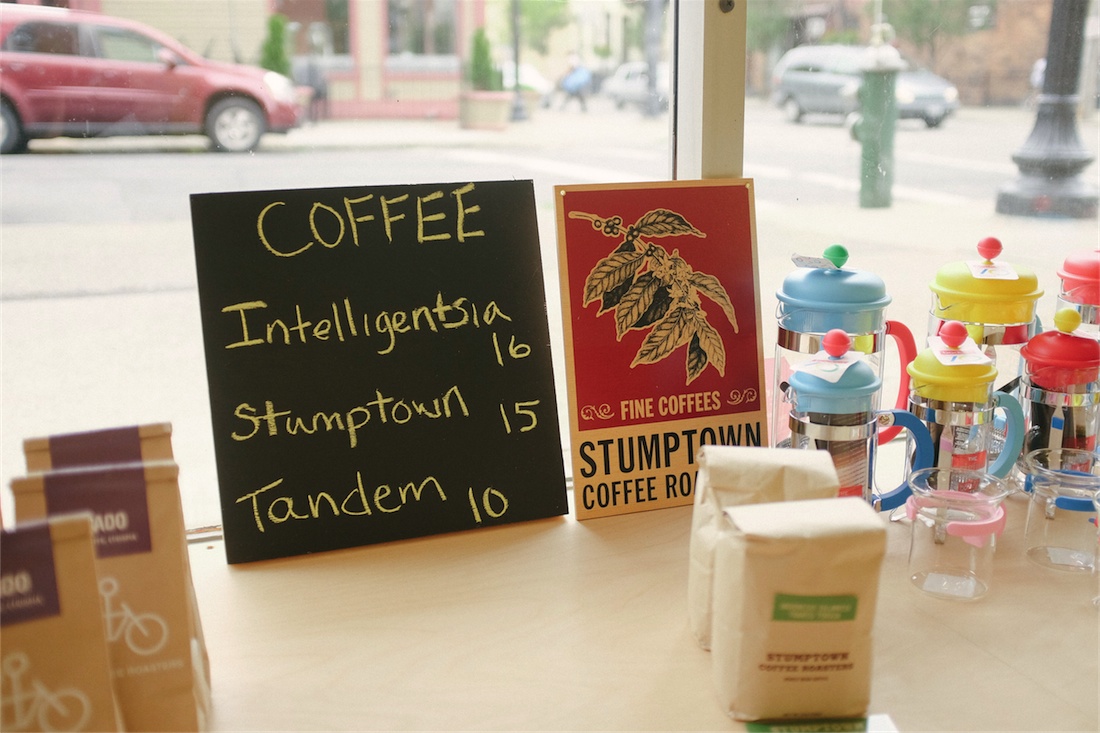 COFFEE
Intelligentsia
16
Stumptown 15
Tandem 10
FINE COFFEES
STUMPTOWN
COFFEE
STUMPTOWN
COFFEE ROASTERS
STUMPTOWN